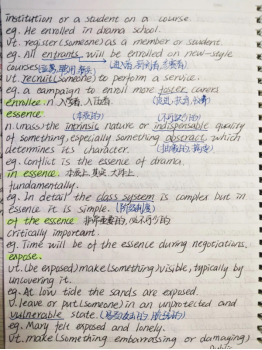 institution or a student on a course.
eg. He enrolled in drama school.
vt. register (someone) as a member or student.
eg. All entrants will be enrolled on new-style
courses
vt. recruit (someone) to perform a service.
eg. a campaign to enroll more foster carers
enrollee. n.
essence.
n. (mass) the intrinsic nature or indispensable quality
of something, especially something abstract, which
determines its character.
eg. Conflict is the essence of drama.
in essence.
fundamentally.
eg. In detail the class system is complex but in
essence it is simple.
of the essence
critically important.
eg. Time will be of the essence during negotiations.
expose.
vt. (be exposed) make (something) visible, typically by
uncovering it.
eg. At low tide the sands are exposed.
leave or put (someone) in an unprotected and
vulnerable state.
eg. Mary felt exposed and lonely.
vt. make (something embarrassing or damaging)